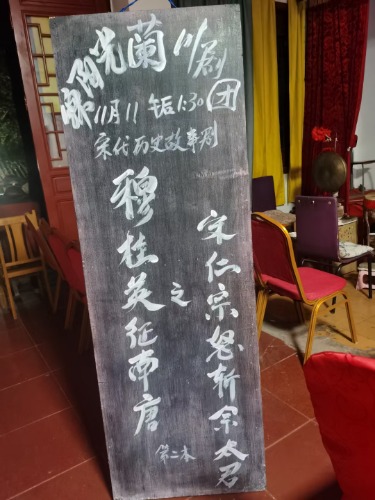 欧阳光蘭川剧团
11月11 午后1:30
宋代历史故事剧
穆桂英征南唐
之
宋仁宗怒斩佘太君
第二本